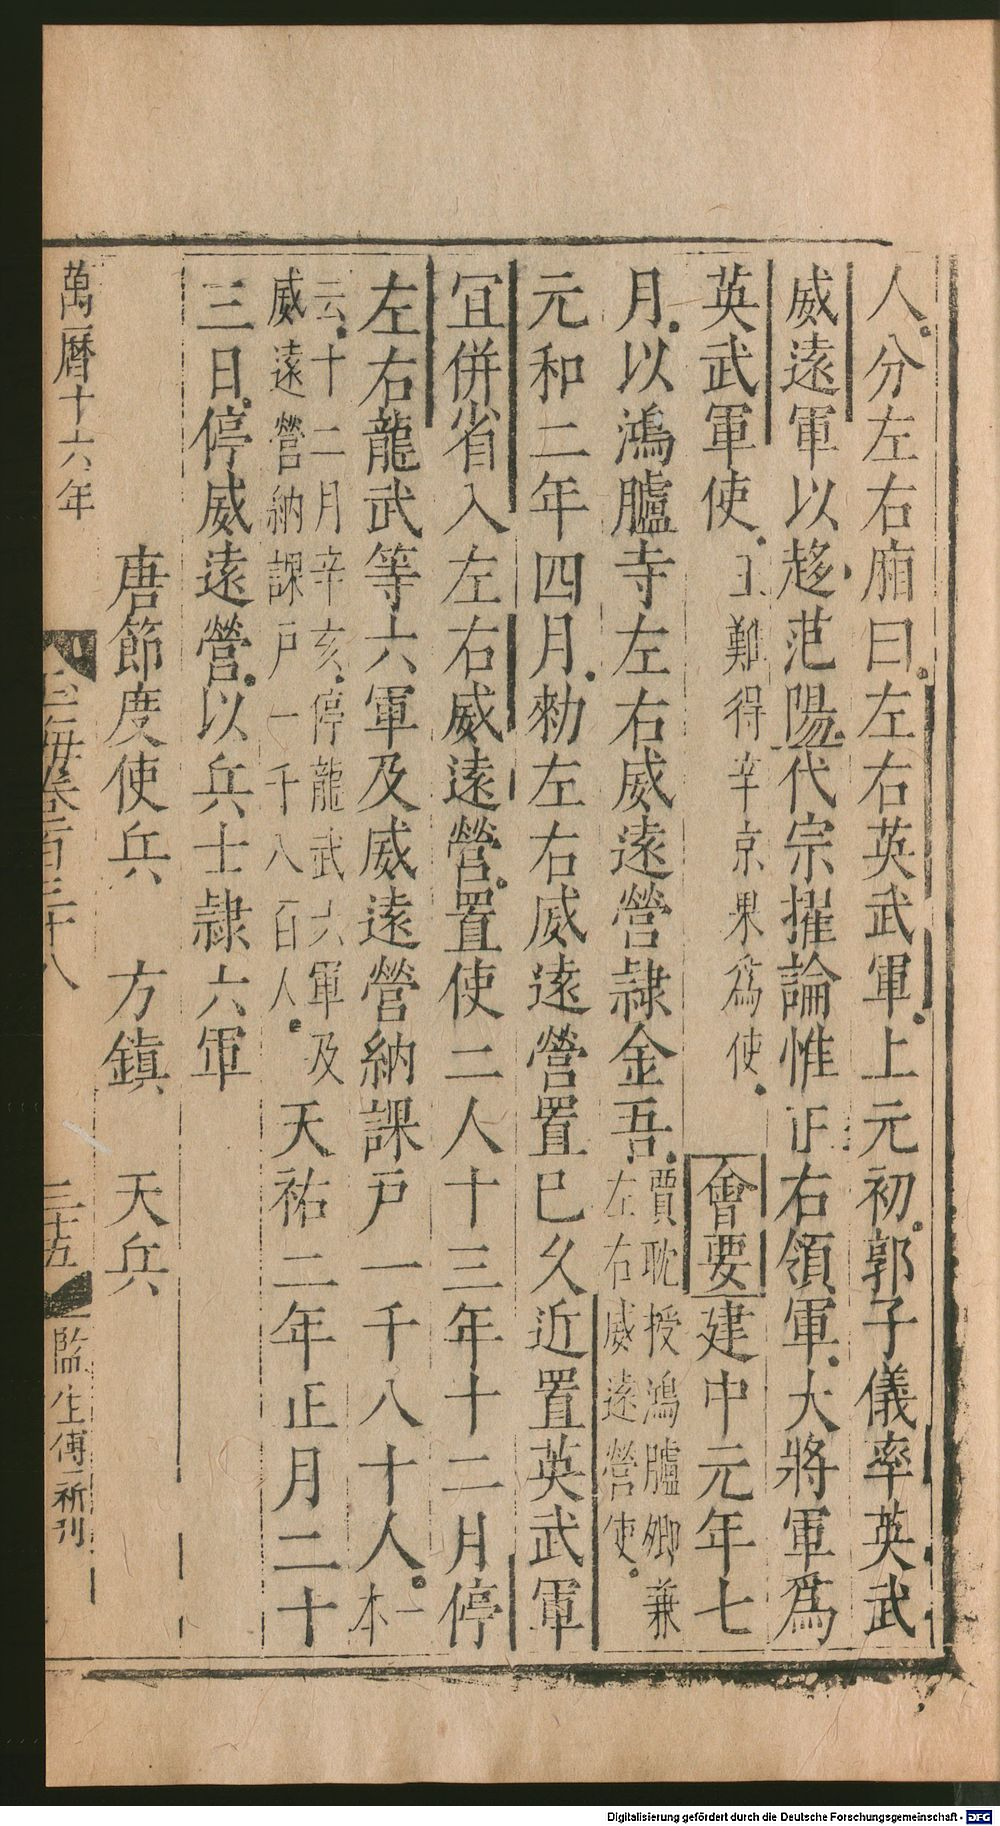 人分左右廂曰左右英武軍上元初郭子儀率英武
威遠軍以趍范陽代宗擢論惟正右領軍大將軍爲
英武軍使王難得辛京果爲使會要建中元年七
月以鴻臚寺左右威遠營隷金吾賈耽授鴻臚卿兼左右威遠營使
元和二年四月勑左右威遠營置巳久近置英武軍
冝併省入左右威遠營置使二人十三年十二月停
左右龍武等六軍及威遠營納課戸一千八十人一本
云十二月辛亥停龍武六軍及威遠營納課戸一千八百人天祐二年正月二十
三日停威遠營以兵士隷六軍
唐節度使兵 方鎮 天兵
萬曆十六年
玉海卷一百三十八
三十五
監生傅新刊
Digitalisierung gefördert durch die Deutsche Forschungsgemeinschaft - DFG